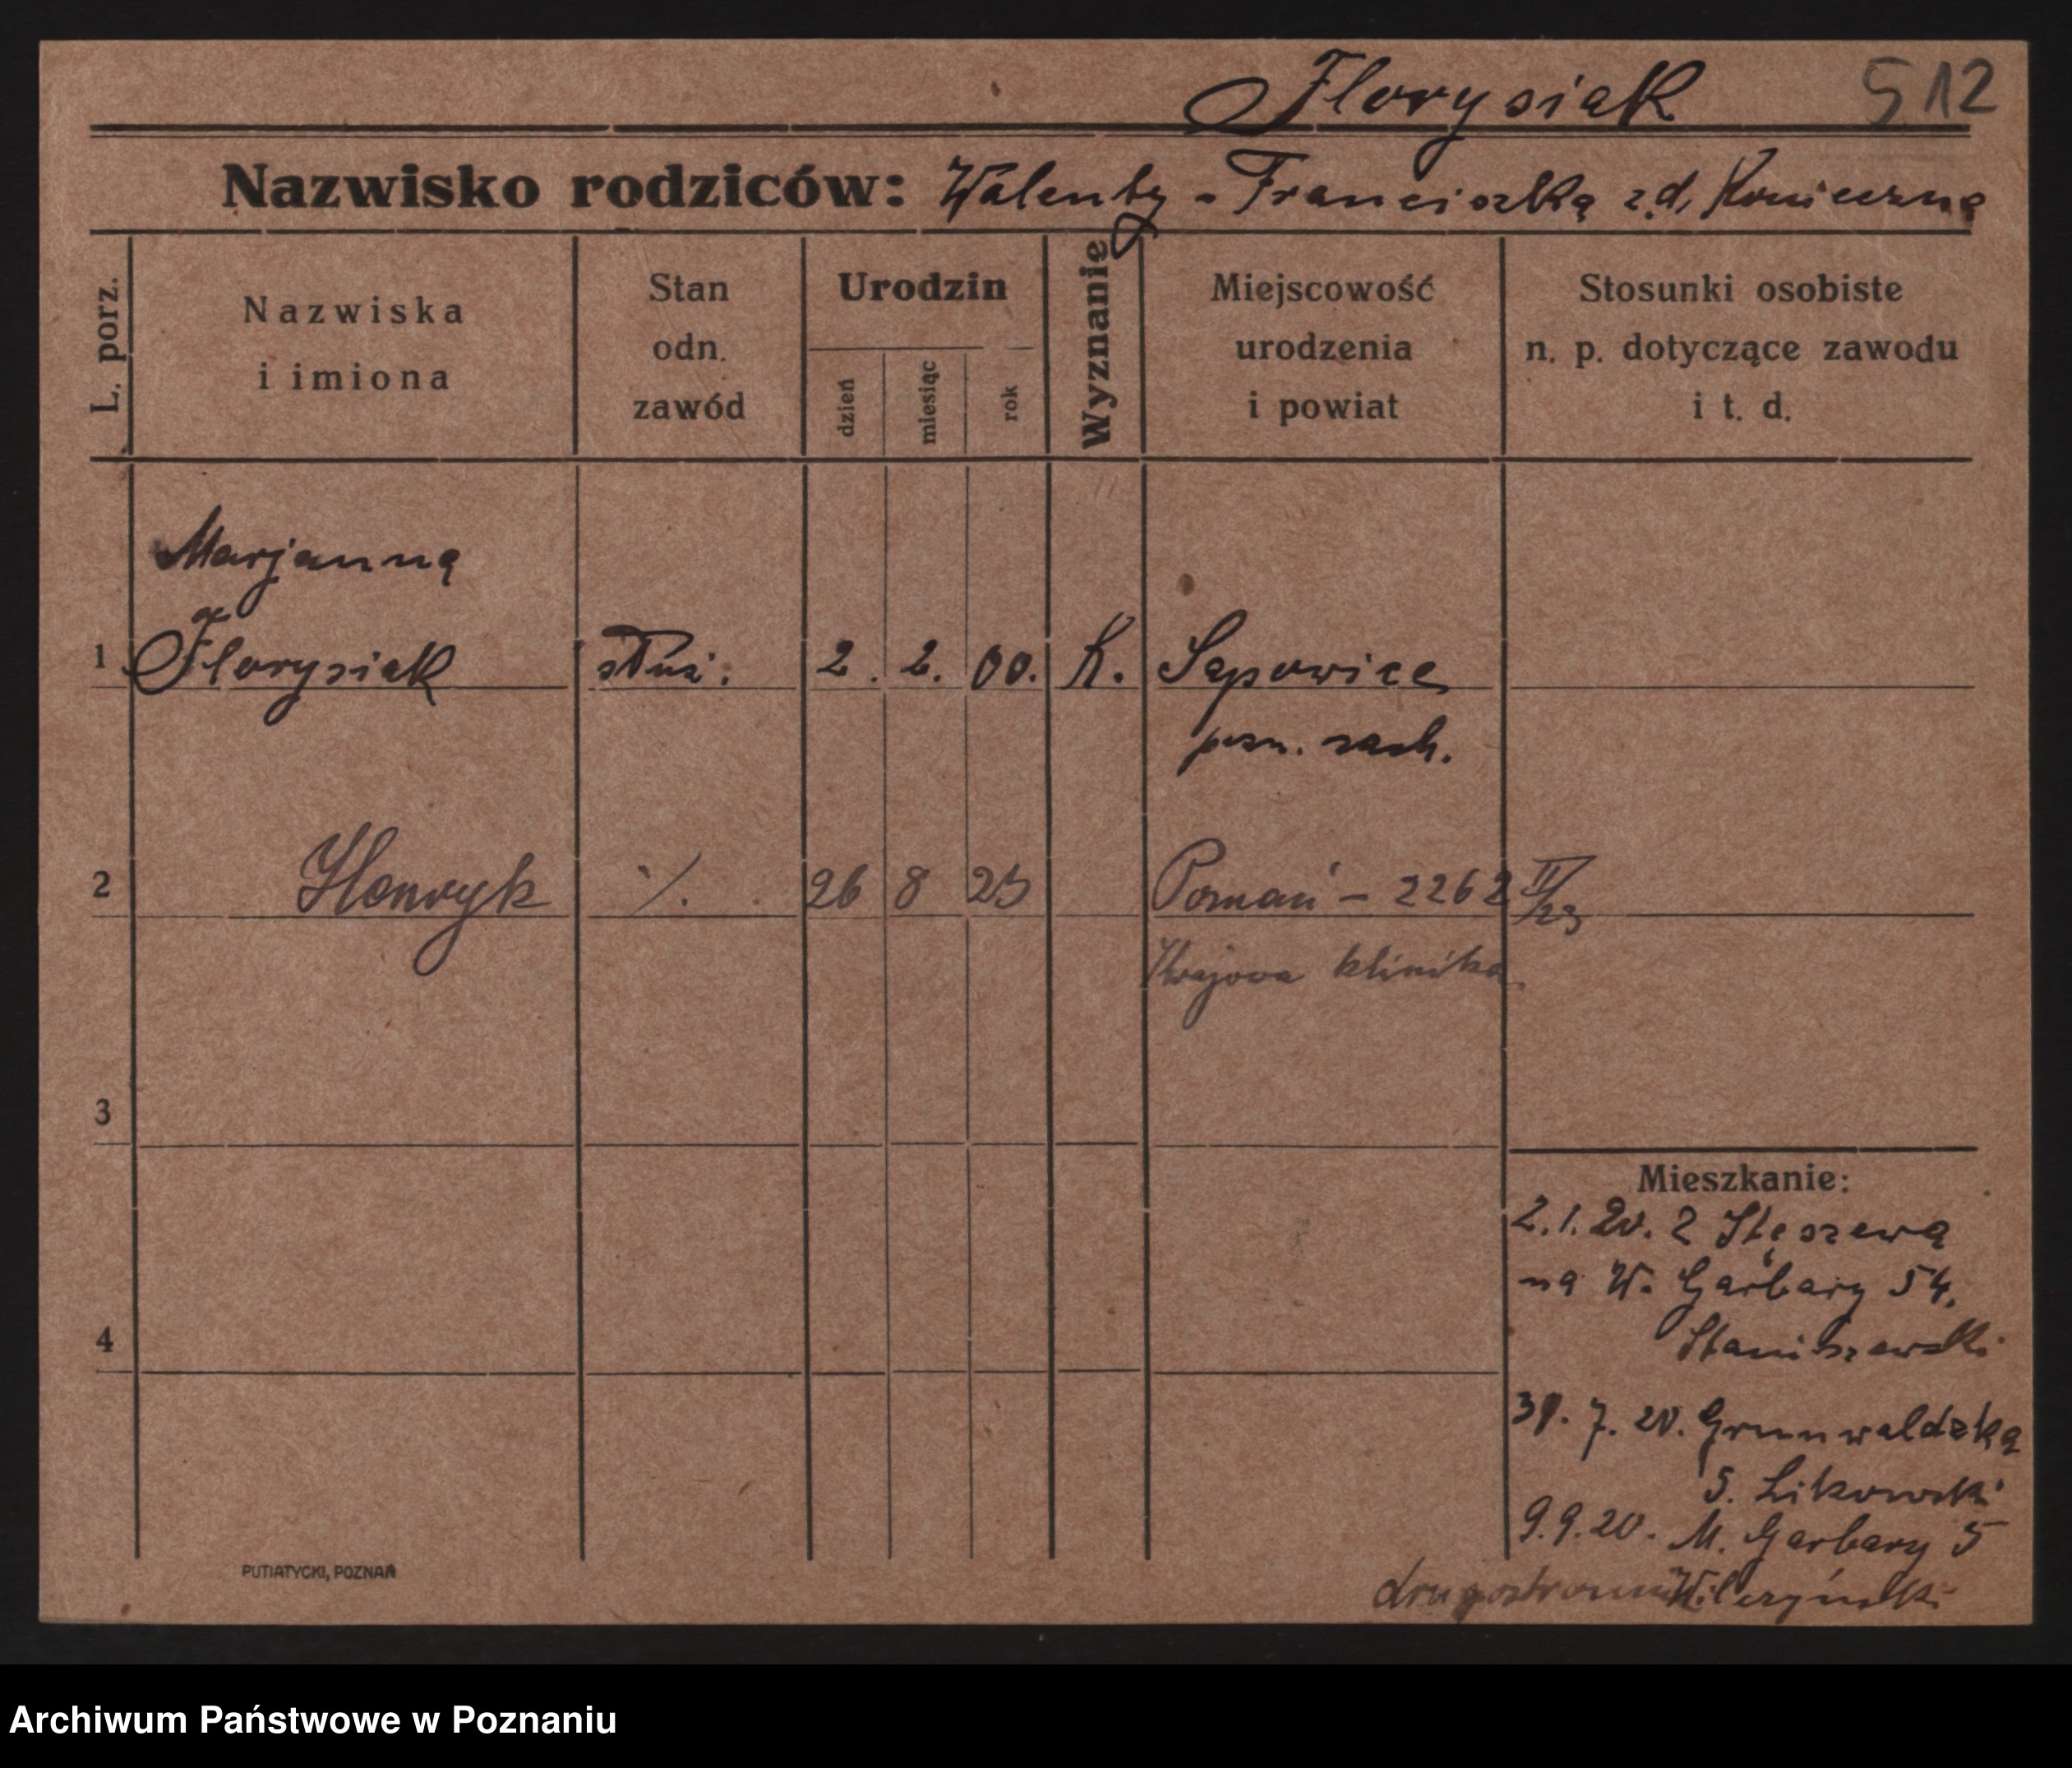 Florysiak 512
Nazwisko rodziców: Walenty - Franciszka z.d. Konieczna
L. porz.
Nazwiska
i imiona
Stan
odn.
zawód
Urodzin
dzień
miesiąc
rok
Wyznanie
Miejscowość
urodzenia
i powiat
Stosunki osobiste
n. p. dotyczące zawodu
i t. d.
Marjanna
1 Florysiak służ. 2. 2. 00. K. Sapowice
pozn. zach.
2 Henryk ./. 26 8 23 Poznań - 2262 II/23
Krajowa klinika
3
4
Mieszkanie:
2.1.20. z Stęszewa
na W. Garbary 54.
Staniszewski
31. 7. 20. Grunwaldzka
5. Likowski
9.9.20. M. Garbary 5
Wilczyński
PUTIATYCKI, POZNAŃ
Archiwum Państwowe w Poznaniu